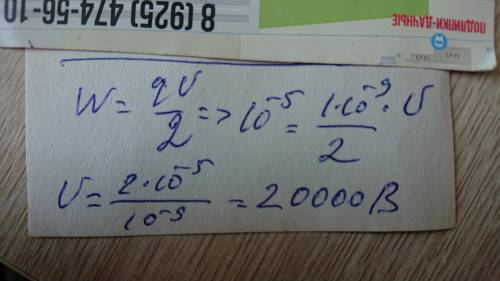 8 (925) 474-56-10
ПОДЛИПКИ-ДАЧНЫЕ
W = qU/2 => 10⁻⁵ = 1·10⁻⁹·U/2
U = 2·10⁻⁵/10⁻⁹ = 20000В